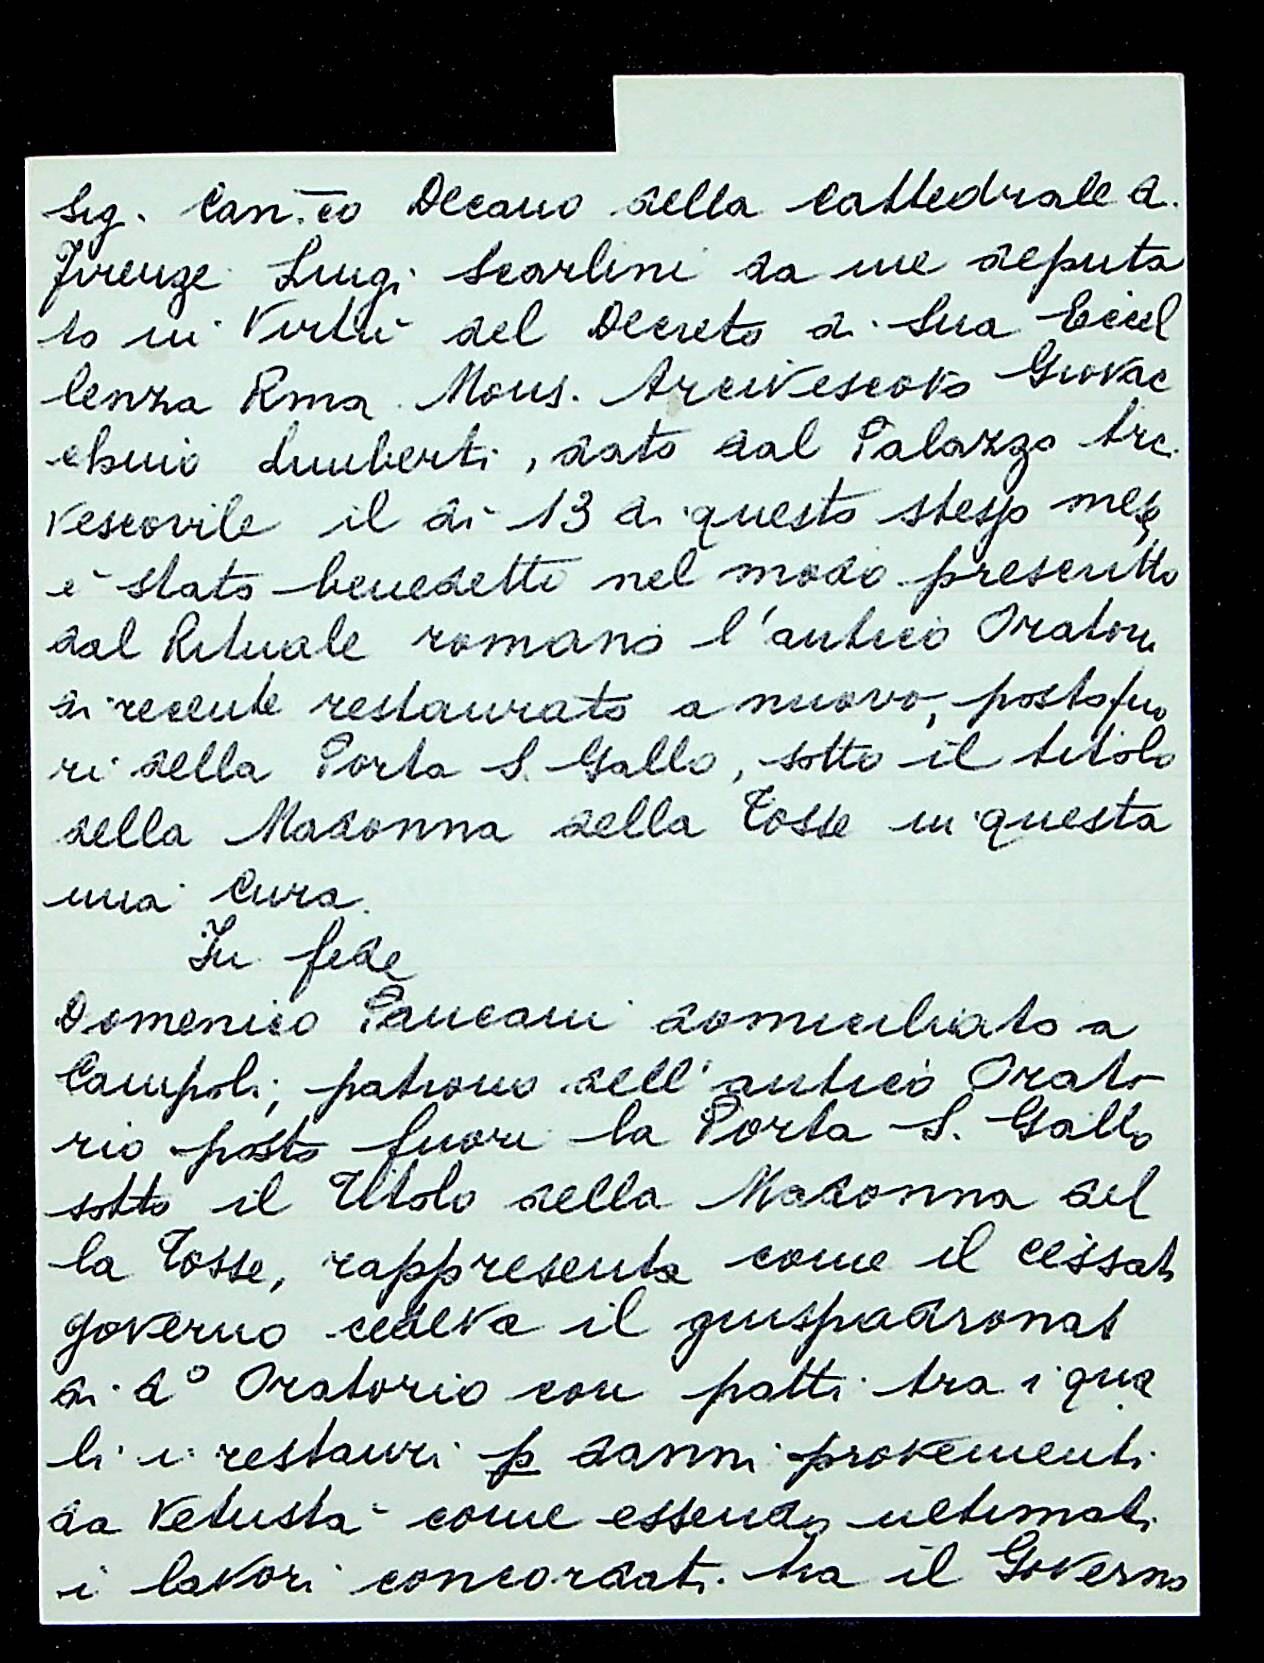 Sig. Can.co Decano della Cattedrale di
Firenze Luigi Scarlini da me deputa
to in Virtù del Decreto di Sua Eccel
lenza Rma Mons. Arcivescovo Giovac
chino Limberti, dato dal Palazzo Arci
vescovile il di 13 di questo stesso mese
è stato benedetto nel modo prescritto
dal Rituale romano l'antico Oratori
di recente restaurato a nuovo, posto fuo
ri della Porta S. Gallo, sotto il titolo
della Madonna della Tosse in questa
mia Cura.
In fede
Domenico Pancani domiciliato a
Campoli, patrono dell'antico Orato
rio posto fuori la Porta S. Gallo
sotto il Titolo della Madonna del
la Tosse, rappresenta come il cessat
governo cedeva il giuspadronat
di do Oratorio con patti tra i qua
li i restauri p danni provenienti
da Vetustà come essendo ultimati
i lavori concordati tra il Governo